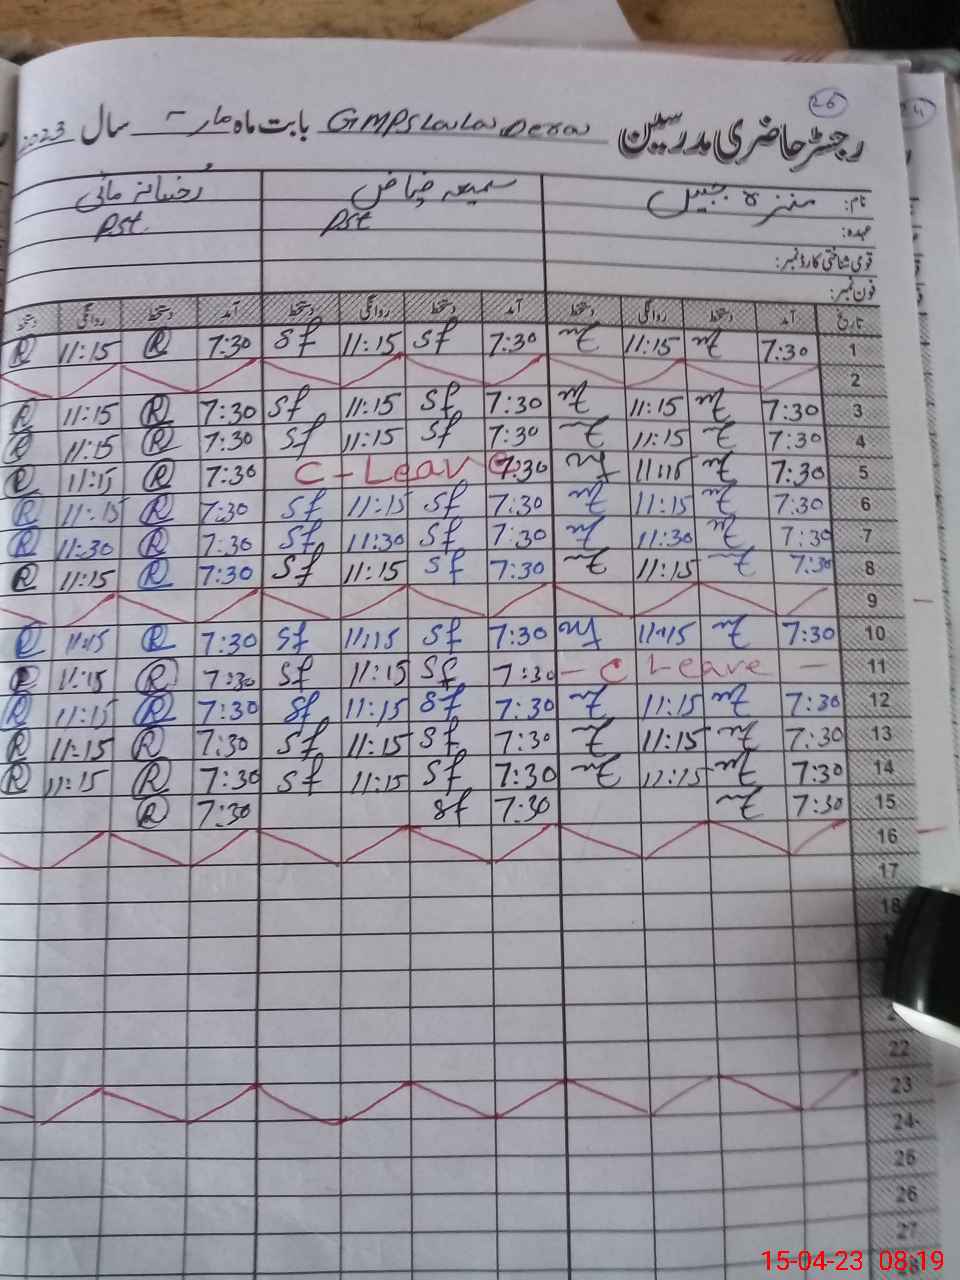 26
رجسٹر حاضری مدرسین GMPS Lala Dera بابت ماہ مارـ سال 2023
نام: منزہ جبیں سمیعہ فیاض رخسانہ
عہدہ: Pst Pst.
قومی شناختی کارڈ نمبر:
فون نمبر:
تاریخ آمد دستخط روانگی دستخط آمد دستخط روانگی دستخط آمد دستخط روانگی دستخط
1 7:30 11:15 7:30 Sf 11:15 Sf 7:30 R 11:15 R
2
3 7:30 11:15 7:30 Sf 11:15 Sf 7:30 R 11:15 R
4 7:30 11:15 7:30 Sf 11:15 Sf 7:30 R 11:15 R
5 7:30 11:15 7:30 C-Leave 7:30 R 11:15 R
6 7:30 11:15 7:30 Sf 11:15 Sf 7:30 R 11:15 R
7 7:30 11:30 7:30 Sf 11:30 Sf 7:30 R 11:30 R
8 7:30 11:15 7:30 Sf 11:15 Sf 7:30 R 11:15 R
9
10 7:30 11:15 7:30 Sf 11:15 Sf 7:30 R 11:15 R
11 – C Leave – 7:30 Sf 11:15 Sf 7:30 R 11:15 R
12 7:30 11:15 7:30 Sf 11:15 Sf 7:30 R 11:15 R
13 7:30 11:15 7:30 Sf 11:15 Sf 7:30 R 11:15 R
14 7:30 11:15 7:30 Sf 11:15 Sf 7:30 R 11:15 R
15 7:30 7:30 Sf 7:30 R
16
17
18
22
23
24
25
26
27
28
15-04-23 08:19